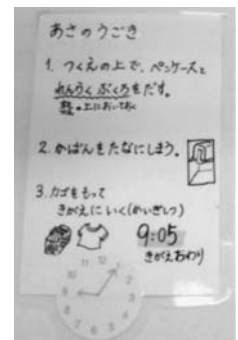 あさのうごき
1. つくえの上で、ペンケースと
れんらくぶくろをだす。
の上においておく
2. かばんをたなにしまう。
3. カゴをもって
きがえにいく(かいぎしつ)
9:05
きがえおわり
12
1
2
3
4
5
6
7
8
9
10
11